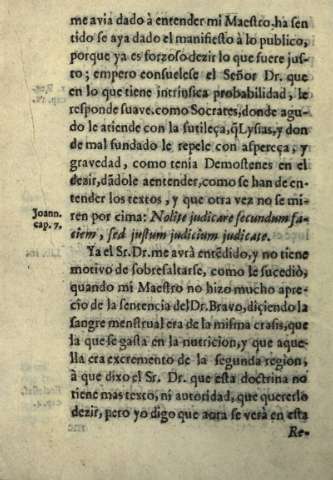 me avia dado à entender mi Maestro, ha sen
tido se aya dado el manifiesto à lo publico,
porque ya es forzoso dezir lo que fuere jus-
to; empero consuelese el Señor Dr. que
en lo que tiene intrinsica probabilidad, le
responde suave, como Socrates, donde agu-
do le atiende con la sutileça, q̃ Lysias, y don
de mal fundado le repele con aspereça, y
gravedad, como tenia Demostenes en el
dezir, dãdole aentender, como se han de en-
tender los textos, y que otra vez no se mi-
Joann. cap. 7.
ren por cima: Nolite judicare secundum fa-
ciem, sed justum judicium judicate.
Ya el Sr. Dr. me avrà entẽdido, y no tiene
motivo de sobresaltarse, como le sucediò,
quando mi Maestro no hizo mucho apre-
cio de la sentencia del Dr. Bravo, diçiendo la
sangre menstrual era de la misma crasis, que
la que se gasta en la nutricion, y que aque-
lla era excremento de la segunda region,
à que dixo el Sr. Dr. que esta doctrina no
tiene mas texto, ni autoridad, que quererlo
dezir, pero yo digo que aora se verà en esta
Re-